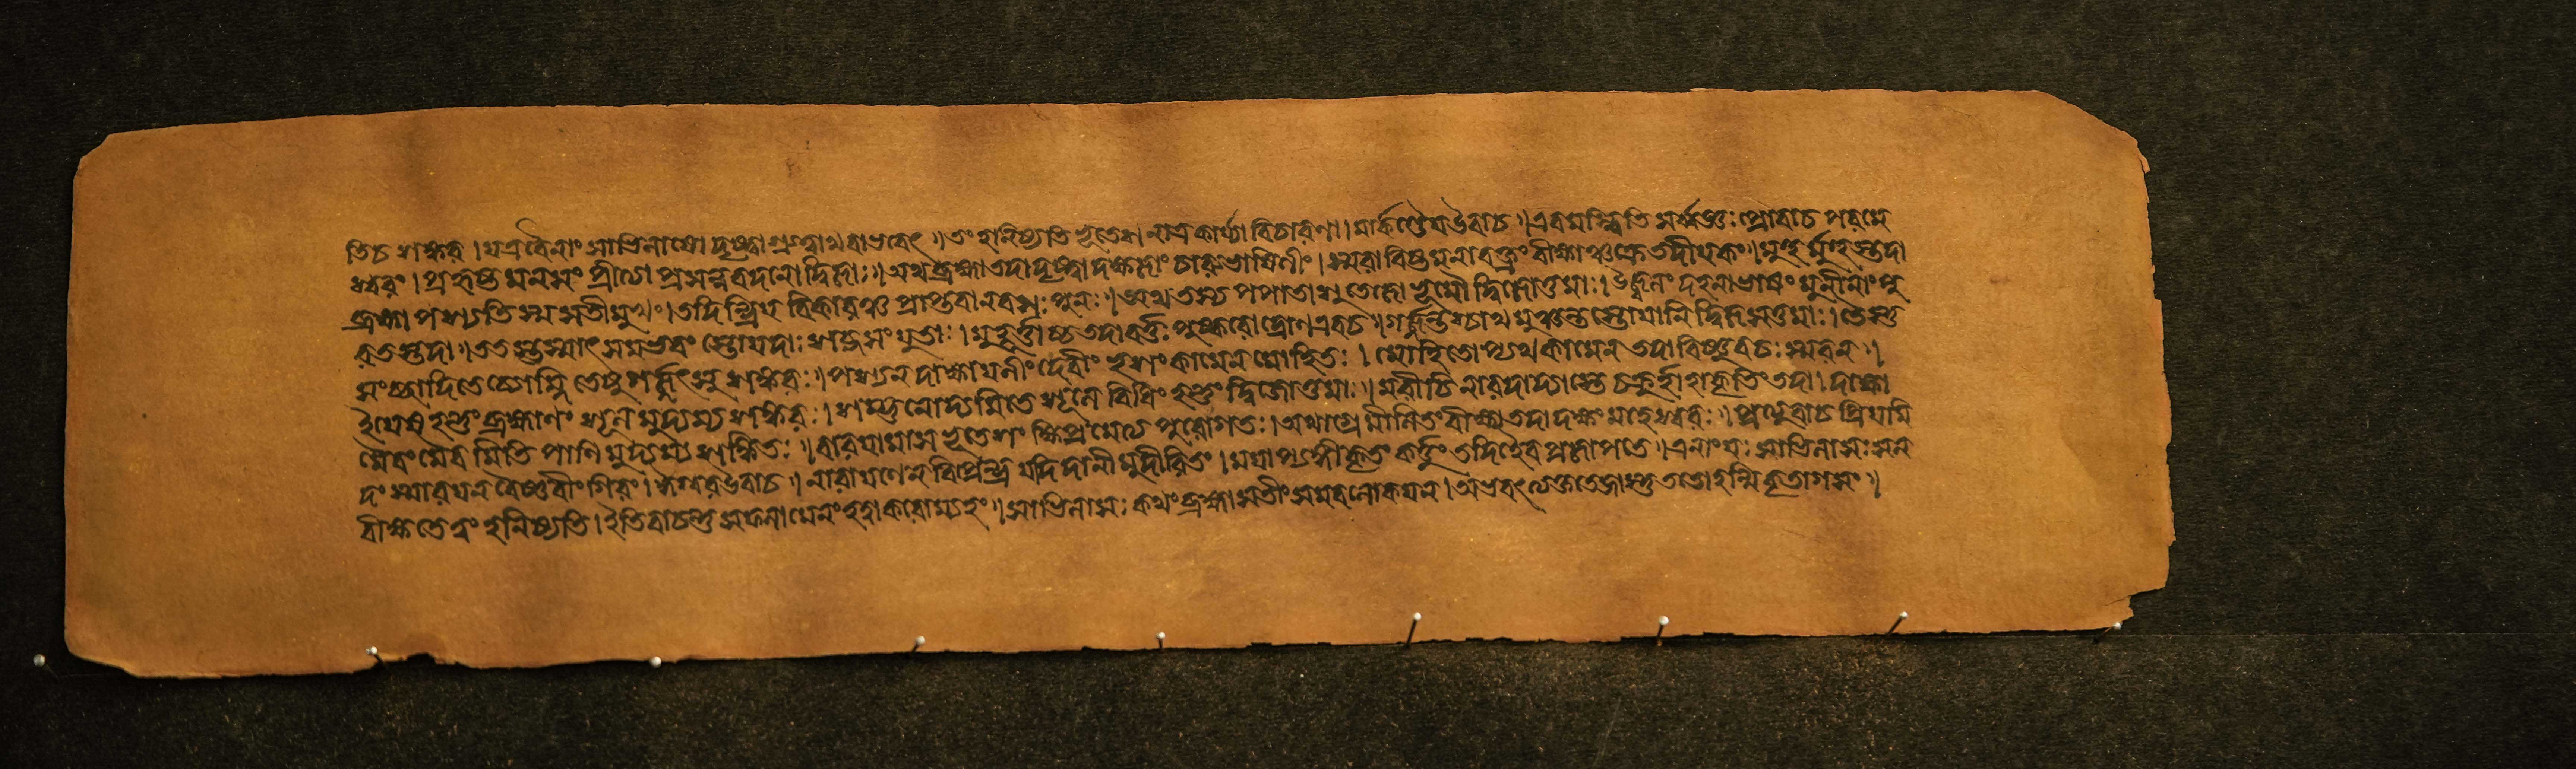 তিচ শঙ্কর । যএবৈনাং সাভিলাষো দৃষ্ট্বা ॥ তং হনিষ্যতি ভূতেশ নাত্র কার্য্যা বিচারণা । মার্কণ্ডেয়উবাচ ॥ এবমস্ত্বিতি সর্ব্বজ্ঞঃ প্রোবাচ পরমে
শ্বরং । প্রহৃষ্ট মনসং প্রীতো প্রসন্নবদনো দ্বিজাঃ ॥ অথব্রহ্মাতদাদৃষ্ট্বা দক্ষজাং চারুহাসিনীং । স্মরাবিষ্টমনাবক্ত্রং বীক্ষাঞ্চক্রে তদীয়কং ॥ মুহুর্মুহুস্তদা
ব্রহ্মা পশ্যতি স্ম সতীমুখং । তদিন্দ্রিয় বিকারঞ্চ প্রাপ্তবানবশঃ পুনঃ । অথ তস্য পপাতাশু তেজো ভূমৌ দ্বিজোত্তমাঃ । দহনাভাসং মুনীনাং পু
রতস্তদা ॥ ততস্তস্মাৎ সমভবং স্তোয়দাঃ শব্দসংযুতাঃ । মুহূর্ত্তাচ্চ তদাবর্ত্তঃ পুষ্করো দ্রোণএবচ ॥ গর্জ্জন্তশ্চাথ মুঞ্চন্তস্তোয়ানি দ্বিজসত্তমাঃ । তৈস্তু
সংচ্ছাদিতে ব্যোম্নি তেষু গর্জ্জৎসু শঙ্করঃ ॥ পশ্যন দাক্ষায়নীং দেবীং ভৃশং কামেন মোহিতঃ । মোহিতোপ্যথকামেন তদা বিষ্ণুবচঃ স্মরন ॥
ইয়েষ হন্তুং ব্রহ্মাণং শূলমুদ্যম্য শঙ্করঃ । শম্ভুনোদ্যমিতে শূলে বিধিং হন্তুং দ্বিজোত্তমাঃ ॥ মরীচি নারদাদ্যাস্তে চক্রুর্হাহাকৃতিং তদা । দাক্ষো
মৈবং মৈবমিতি পাণিমুদ্যম্য শঙ্কিতঃ ॥ বারয়ামাস ভূতেশং ক্ষিপ্রমেত্য পুরোগতঃ । অথাগ্রে মীলিতং বীক্ষ্য তদা দক্ষং মহেশ্বরঃ ॥ প্রত্যুবাচ প্রিয়মি
দং স্মারয়ন বৈষ্ণবীং গিরং । ঈশ্বরউবাচ । নারায়ণেন বিপ্রেন্দ্র যদিদানীমুদীরিতং । ময়াপ্যঙ্গীকৃতং কর্ত্তুং তদিহৈব প্রজাপতে ॥ এনাংযঃ সাভিলাসঃ সন
বীক্ষতে ত্বং হনিষ্যতি । ইতিবাচন্তু সফলামেনংহত্বাকরোম্যহং ॥ সাভিলাসঃ কথং ব্রহ্মা সতীং সমবলোকয়ন । অভবৎ ত্যক্ততেজাস্তু ততোহন্মি কৃতাগসং ॥